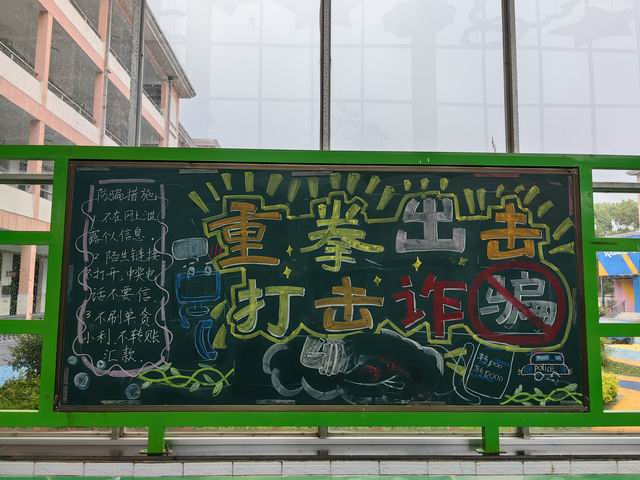 防骗措施
1 不在网上泄
露个人信息.
2 陌生链接
不打开.中奖电
话不要信.
3 不刷单贪
小利.不转账
汇款.
重拳出击
打击诈骗
police